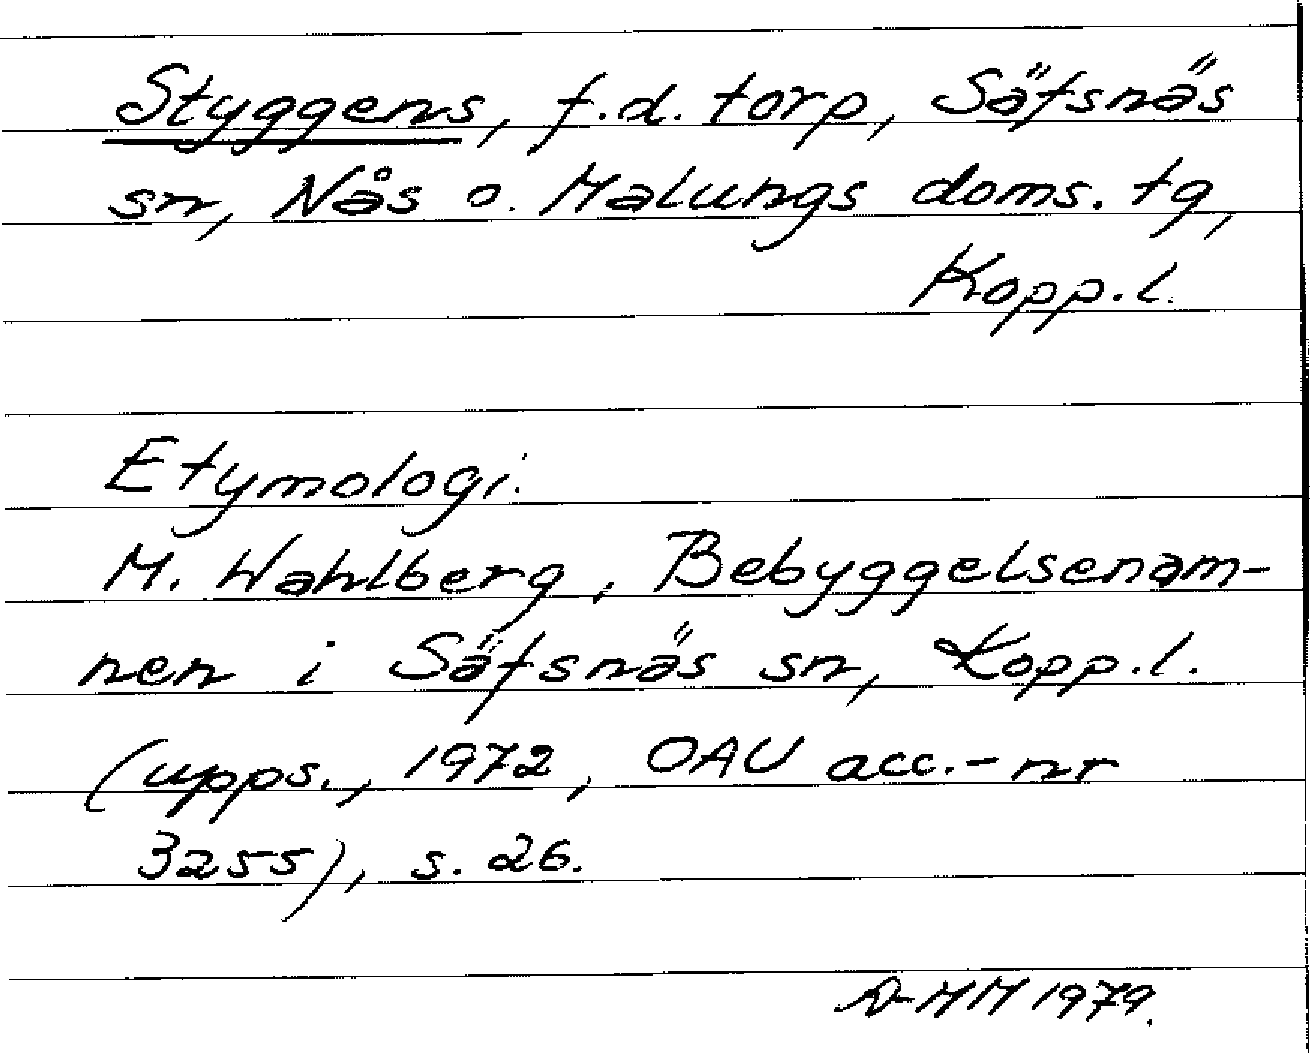 Styggens, f.d. torp, Säfsnäs
sn, Nås o. Malungs doms. tg,
Kopp.l.
Etymologi.
M. Wahlberg, Bebyggelsenam-
nen i Säfsnäs sn, Kopp.l.
(upps., 1972, OAU acc.-nr
3255), s. 26.
A-MM 1979.